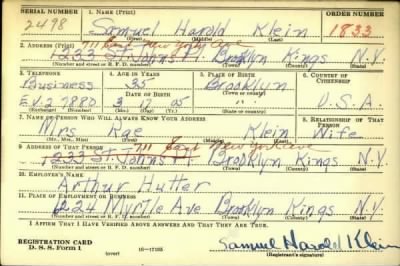 SERIAL NUMBER 1. NAME (Print) ORDER NUMBER
2498 Samuel Harold Klein 1833
(First) (Middle) (Last)
2. ADDRESS (Print) 711 East New York Ave
1233 St. Johns Pl. Brooklyn Kings N.Y.
(Number and street or R. F. D. number) (Town) (County) (State)
3. TELEPHONE 4. AGE IN YEARS 5. PLACE OF BIRTH 6. COUNTRY OF CITIZENSHIP
Business 35 Brooklyn
DATE OF BIRTH (Town or county)
EV. 2 7880 3 17 05 " " U.S.A.
(Mo.) (Day) (Yr.) (State or country)
7. NAME OF PERSON WHO WILL ALWAYS KNOW YOUR ADDRESS 8. RELATIONSHIP OF THAT PERSON
Mrs Rae Klein Wife
(Mr., Mrs., Miss) (First) (Middle) (Last)
9. ADDRESS OF THAT PERSON 711 East New York Ave
1233 St. Johns Pl Brooklyn Kings N.Y.
(Number and street or R. F. D. number) (Town) (County) (State)
10. EMPLOYER'S NAME
Arthur Hutter
11. PLACE OF EMPLOYMENT OR BUSINESS
1224 Myrtle Ave Brooklyn Kings N.Y.
(Number and street or R. F. D. number) (Town) (County) (State)
I AFFIRM THAT I HAVE VERIFIED ABOVE ANSWERS AND THAT THEY ARE TRUE.
REGISTRATION CARD
D. S. S. Form 1 (over) Samuel Harold Klein
(Registrant's signature)